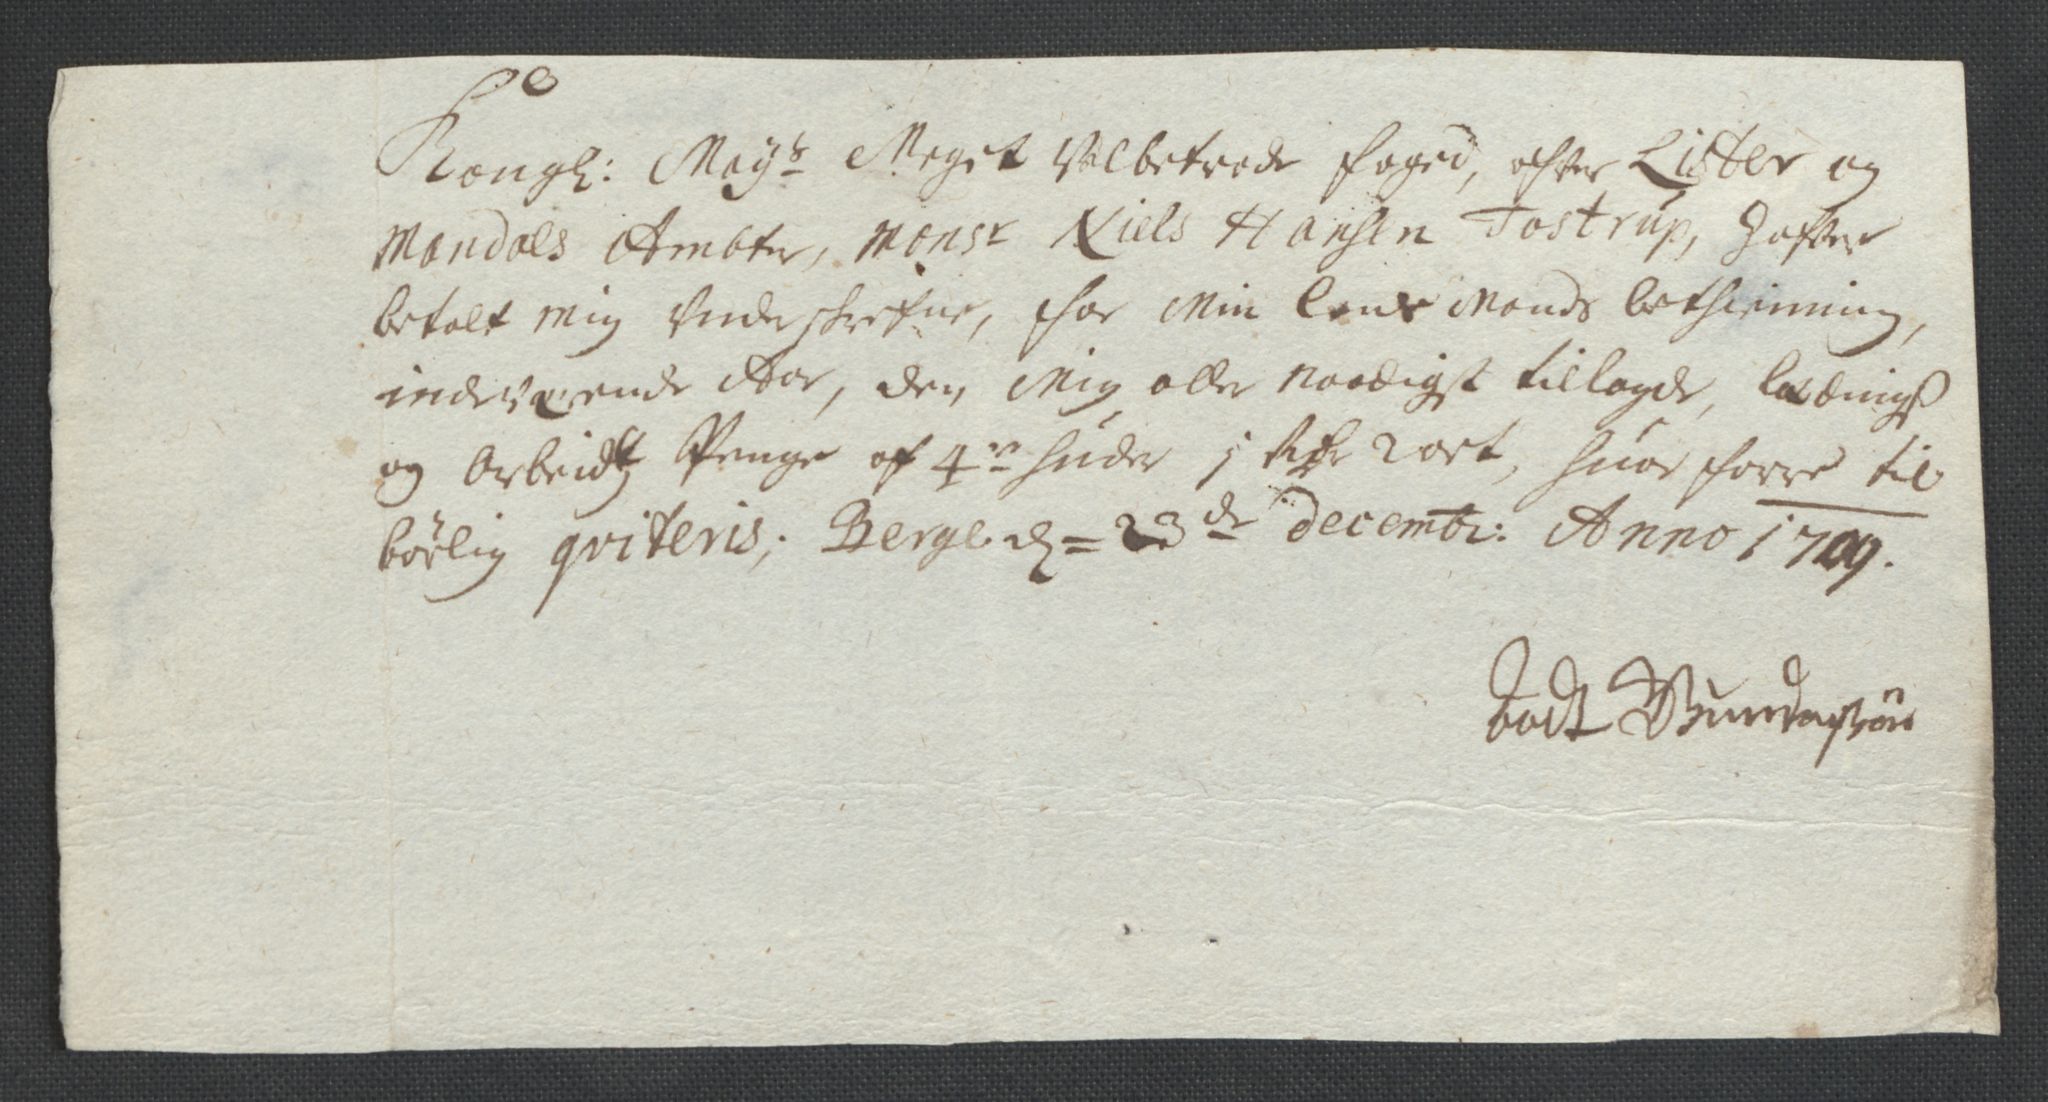 Kongl: Mayts Meget Velbetrode foged, ofver Lister og
Mandals Ambter, Monsr Niels Hansen Tostrup, Hafver
betalt mig Underschrefne, for Min Lends Mands bethienning,
indeværende Aar, den Mig aller Naadigst tillagde, Leednings
og Arbeidtz Penge af 4re huder 1 Rdr 2 ort, huor forre til
børlig qviteris; Berge d= 23de decembr: Anno 1709.
Todt Gundersøn